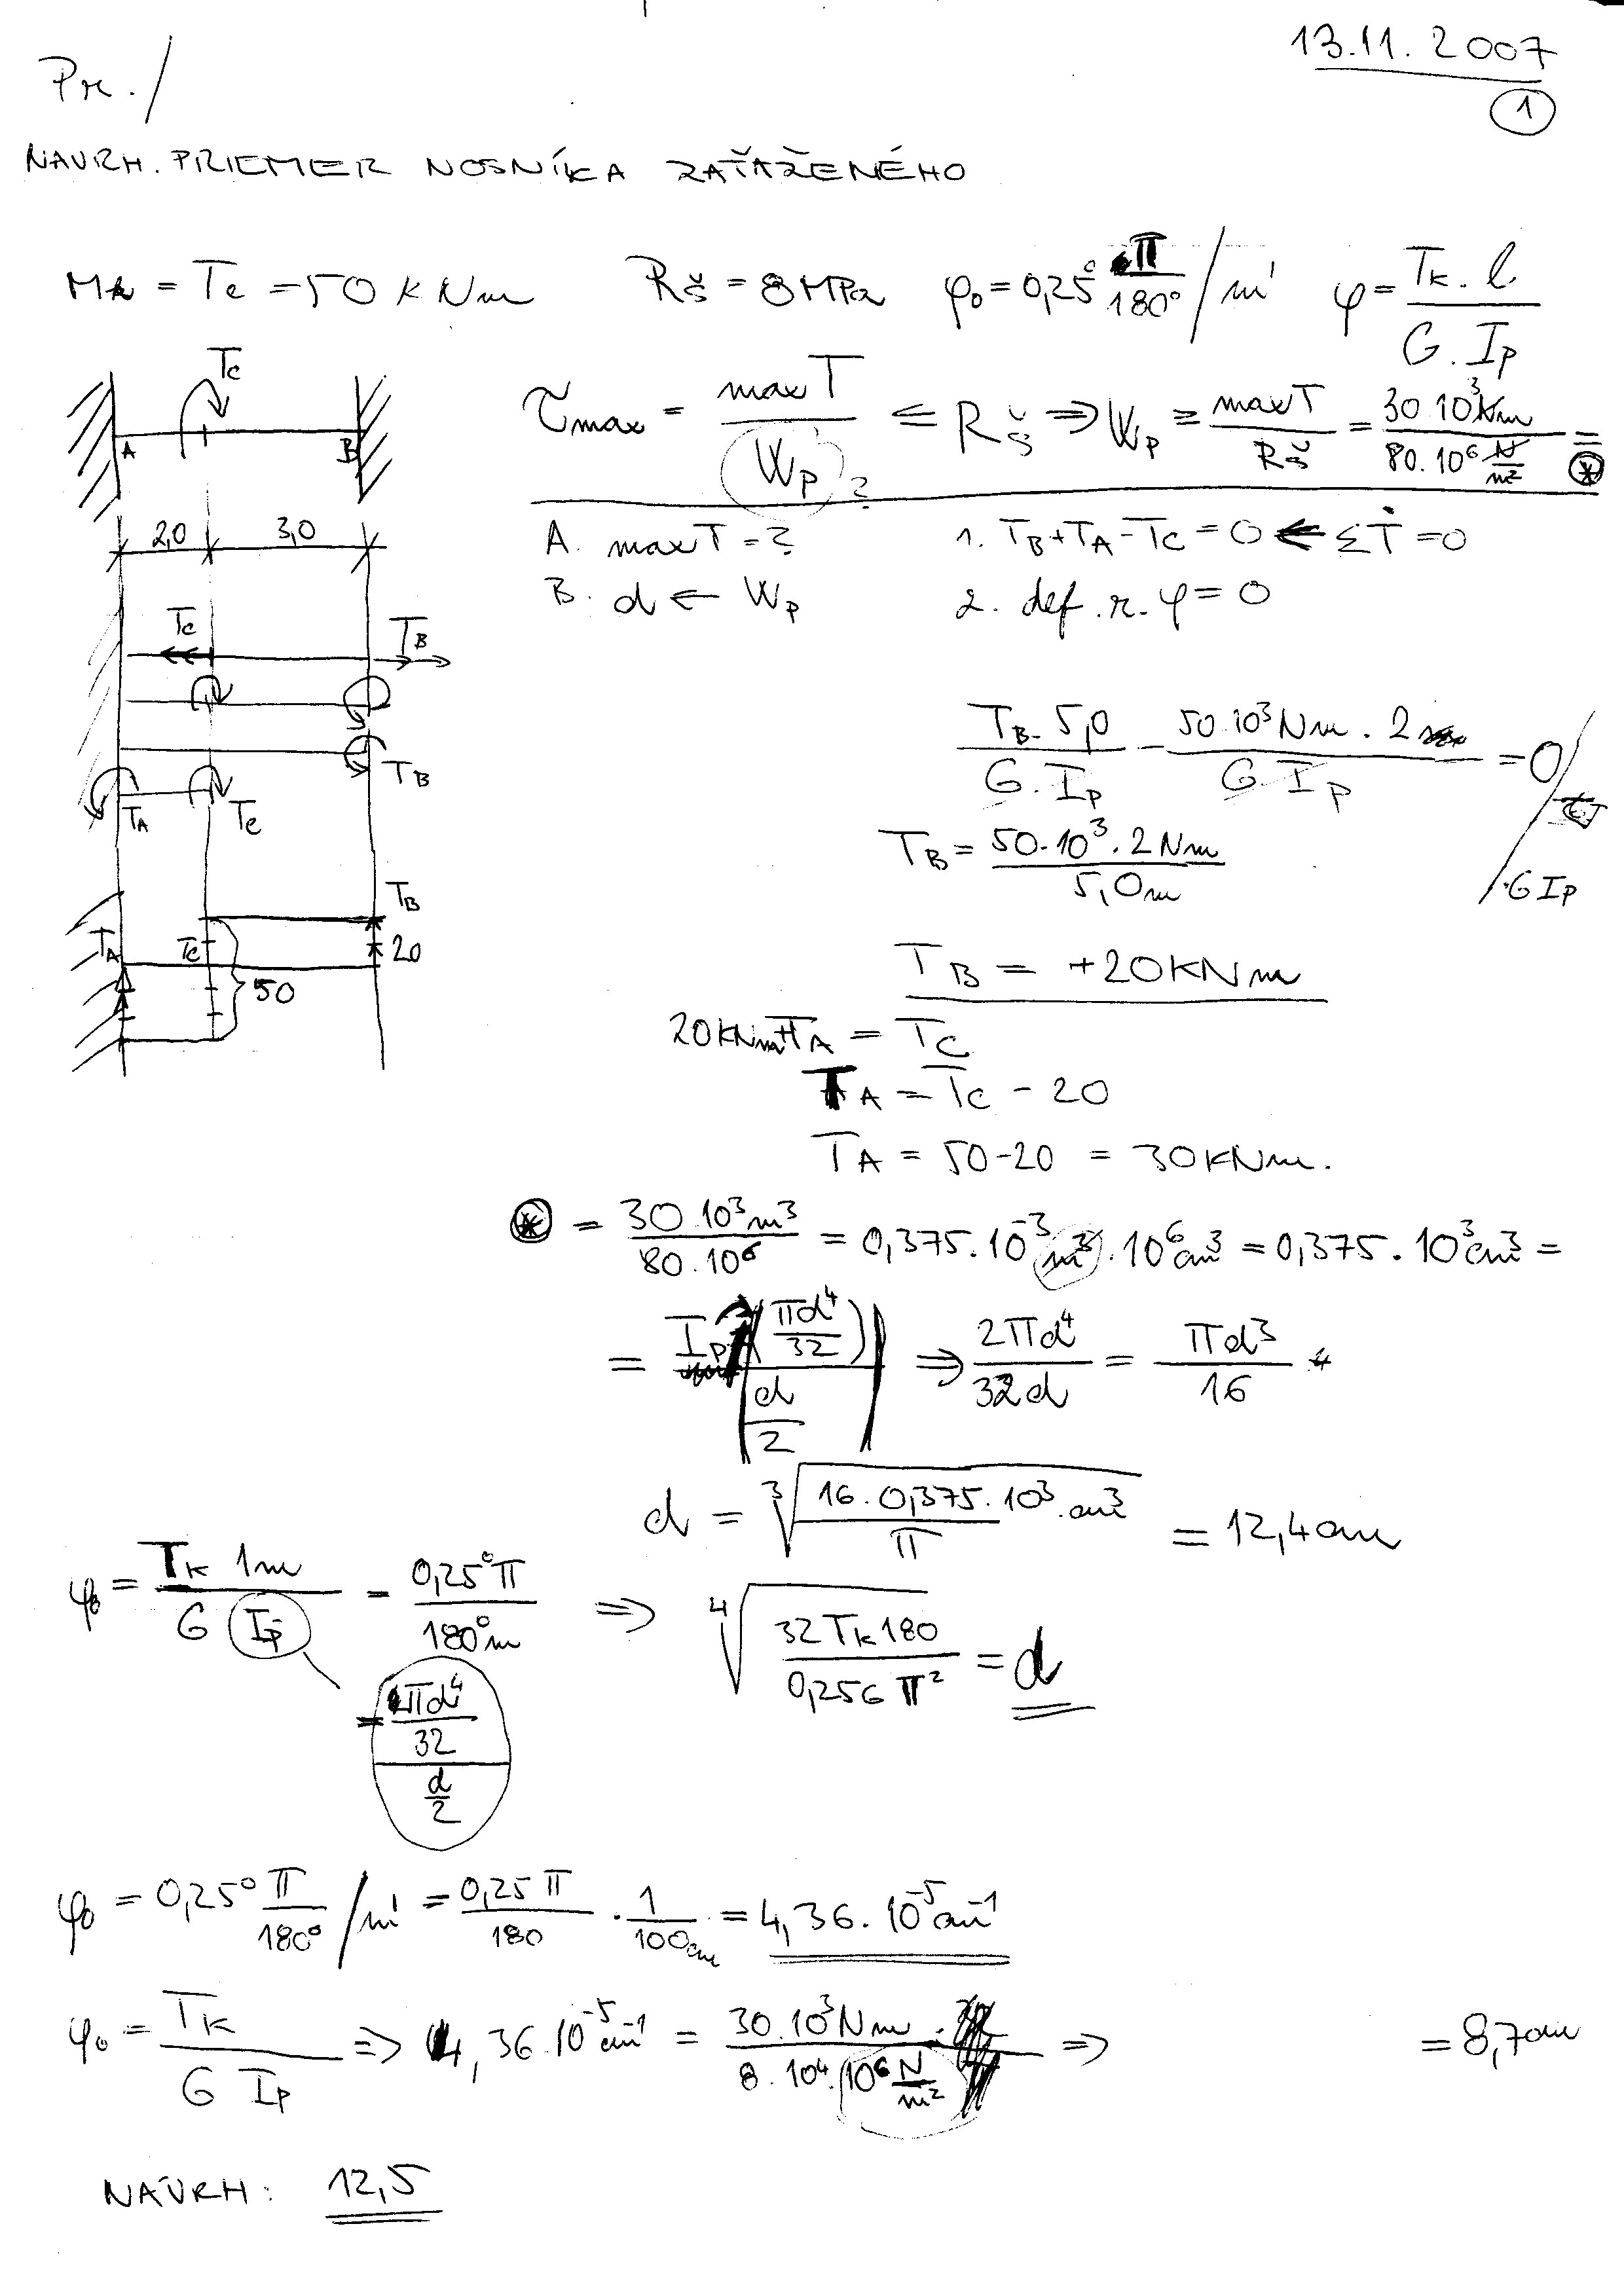 13.11.2007
1
Pr./
NÁVRH. PRIEMER NOSNÍKA ZAŤAŽENÉHO
Mk = Tc = 50 kNm Rš = 8 MPa φ0 = 0,25° π/180° /m' φ = Tk.l / G.Ip
Tc
A B
τmax = maxT / Wp ? ≤ Rš ⇒ Wp ≥ maxT / Rš = 30.10³ Nm / 80.10⁶ N/m² = ⊛
2,0 3,0
A. maxT = ? 1. TB + TA - TC = 0 ← ΣT = 0
B. d ← Wp 2. def. r. φ = 0
Tc TB
TB
TA Tc
TB . 5,0 / G.Ip - 50.10³ Nm . 2 / G.Ip = 0 / .G Ip
TB = 50.10³.2 Nm / 5,0m
TB
TA Tc 20
50
TB = +20KNm
20KNm + TA = TC
TA = TC - 20
TA = 50-20 = 30KNm.
⊛ = 30.10³ m³ / 80.10⁶ = 0,375.10⁻³ m³ . 10⁶ cm³ = 0,375.10³ cm³ =
= Ip (πd⁴/32) / d/2 ⇒ 2πd⁴ / 32d = πd³ / 16
d = ³√(16.0,375.10³.cm³ / π) = 12,4 cm
φ0 = Tk 1m / G Ip = 0,25°π / 180°m ⇒ ⁴√(32 Tk 180 / 0,25G π²) = d
= πd⁴/32 / d/2
φ0 = 0,25° π/180° /m' = 0,25π / 180 . 1 / 100cm = 4,36.10⁻⁵ cm⁻¹
φ0 = Tk / G Ip ⇒ 4,36.10⁻⁵ cm⁻¹ = 30.10³ Nm . / 8.10⁴.10⁶ N/m² ⇒ = 8,7cm
NÁVRH: 12,5